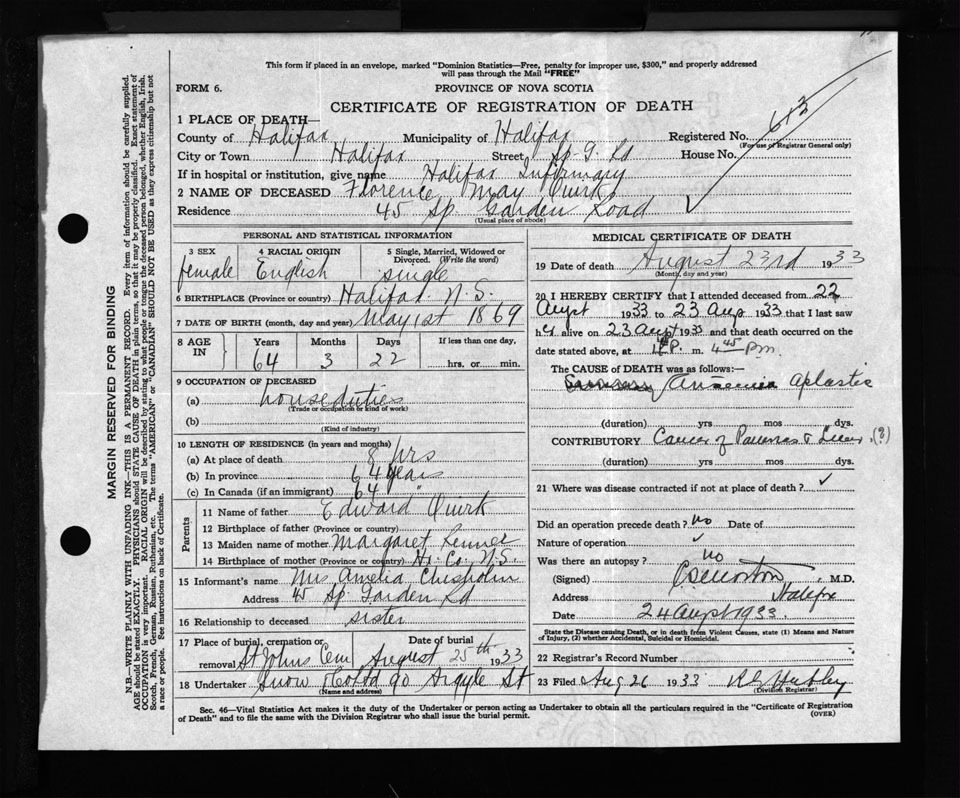 This form if placed in an envelope, marked "Dominion Statistics—Free, penalty for improper use, $300," and properly addressed
will pass through the Mail "FREE"
FORM 6. PROVINCE OF NOVA SCOTIA
CERTIFICATE OF REGISTRATION OF DEATH
1 PLACE OF DEATH—
County of Halifax Municipality of Halifax Registered No. 613
(For use of Registrar General only)
City or Town Halifax Street Sp. G. Rd House No.
If in hospital or institution, give name Halifax Infirmary
2 NAME OF DECEASED Florence May Quirk
Residence 45 Sp. Garden Road
(Usual place of abode)
PERSONAL AND STATISTICAL INFORMATION
3 SEX 4 RACIAL ORIGIN 5 Single, Married, Widowed or Divorced. (Write the word)
female English single
6 BIRTHPLACE (Province or country) Halifax N.S.
7 DATE OF BIRTH (month, day and year) May 1st 1869
8 AGE IN Years Months Days If less than one day,
64 3 22 hrs. or min.
9 OCCUPATION OF DECEASED
(a) house duties
(Trade or occupation or kind of work)
(b)
(Kind of industry)
10 LENGTH OF RESIDENCE (in years and months)
(a) At place of death 8 yrs
(b) In province 64 years
(c) In Canada (if an immigrant) 64 "
Parents
11 Name of father Edward Quirk
12 Birthplace of father (Province or country)
13 Maiden name of mother Margaret
14 Birthplace of mother (Province or country) Hx. Co. N.S.
15 Informant's name Mrs Amelia Chisholm
Address 45 Sp. Garden Rd
16 Relationship to deceased sister
17 Place of burial, cremation or Date of burial
removal St Johns Cem August 25th 1933
18 Undertaker Snow & Co Ltd 90 Argyle St
(Name and address)
MEDICAL CERTIFICATE OF DEATH
19 Date of death August 23rd 1933
(Month, day and year)
20 I HEREBY CERTIFY that I attended deceased from 22
Augst 1933 to 23 Aug 1933 that I last saw
her alive on 23 Augt 1933 and that death occurred on the
date stated above, at P. m. 4 45 P.m.
The CAUSE of DEATH was as follows:—
Anaemia aplastic
(duration) yrs mos dys.
CONTRIBUTORY Cancer of Pancreas & Liver (?)
(duration) yrs mos dys.
21 Where was disease contracted if not at place of death?
Did an operation precede death? no Date of
Nature of operation
Was there an autopsy? no
(Signed) M.D.
Address Halifax
Date 24 Augt 1933.
State the Disease causing Death, or in death from Violent Causes, state (1) Means and Nature
of Injury, (2) whether Accidental, Suicidal or Homicidal.
22 Registrar's Record Number
23 Filed Aug 26 1933
(Division Registrar)
Sec. 46—Vital Statistics Act makes it the duty of the Undertaker or person acting as Undertaker to obtain all the particulars required in the "Certificate of Registration
of Death" and to file the same with the Division Registrar who shall issue the burial permit. (OVER)
MARGIN RESERVED FOR BINDING
N.B.—WRITE PLAINLY WITH UNFADING INK—THIS IS A PERMANENT RECORD. Every item of information should be carefully supplied.
AGE should be stated EXACTLY. PHYSICIANS should STATE CAUSE OF DEATH in plain terms, so that it may be properly classified. Exact statement of
OCCUPATION is very important. RACIAL ORIGIN will be described by stating to what people or tongue the deceased person belonged, whether English, Irish,
Scotch, French, German, Russian, Ruthenian, etc. The terms "AMERICAN" or "CANADIAN" SHOULD NOT BE USED as they express citizenship but not
a race or people. See instructions on back of Certificate.